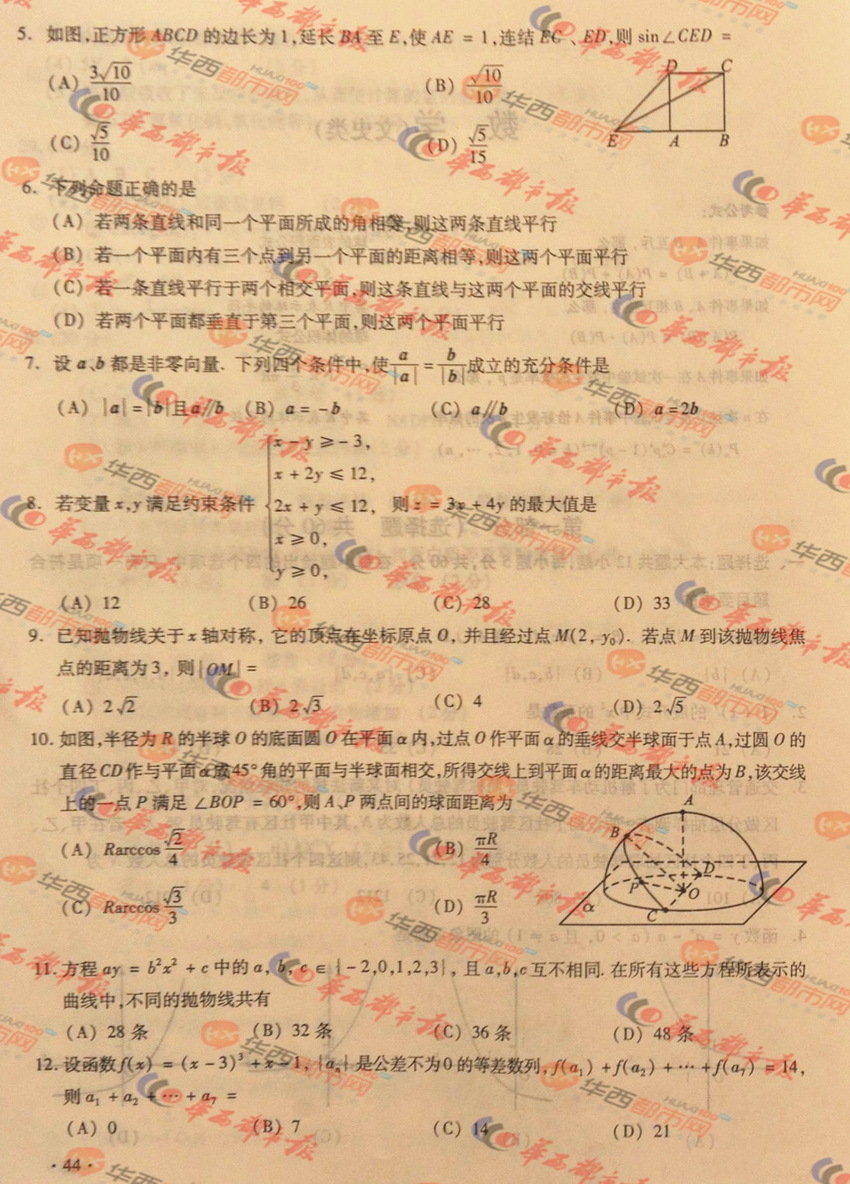 5. 如图,正方形 ABCD 的边长为 1,延长 BA 至 E,使 AE = 1,连结 EC、ED,则 sin∠CED =
(A) 3√10/10 (B) √10/10
(C) √5/10 (D) √5/15
D C
E A B
6. 下列命题正确的是
(A) 若两条直线和同一个平面所成的角相等,则这两条直线平行
(B) 若一个平面内有三个点到另一个平面的距离相等,则这两个平面平行
(C) 若一条直线平行于两个相交平面,则这条直线与这两个平面的交线平行
(D) 若两个平面都垂直于第三个平面,则这两个平面平行
7. 设 a、b 都是非零向量. 下列四个条件中,使 a/|a| = b/|b| 成立的充分条件是
(A) |a|=|b|且a∥b (B) a = -b (C) a∥b (D) a=2b
x - y ≥ -3,
x + 2y ≤ 12,
8. 若变量 x,y 满足约束条件 2x + y ≤ 12, 则 z = 3x + 4y 的最大值是
x ≥ 0,
y ≥ 0,
(A) 12 (B) 26 (C) 28 (D) 33
9. 已知抛物线关于 x 轴对称, 它的顶点在坐标原点 O, 并且经过点 M(2, y₀). 若点 M 到该抛物线焦
点的距离为 3, 则|OM| =
(A) 2√2 (B) 2√3 (C) 4 (D) 2√5
10. 如图,半径为 R 的半球 O 的底面圆 O 在平面 α 内,过点 O 作平面 α 的垂线交半球面于点 A,过圆 O 的
直径 CD 作与平面 α 成45°角的平面与半球面相交,所得交线上到平面 α 的距离最大的点为 B,该交线
上的一点 P 满足 ∠BOP = 60°,则 A、P 两点间的球面距离为
(A) Rarccos √2/4 (B) πR/4
(C) Rarccos √3/3 (D) πR/3
A
B
D
P O
α C
11. 方程 ay = b²x² + c 中的 a, b, c ∈ {-2,0,1,2,3}, 且 a,b,c 互不相同. 在所有这些方程所表示的
曲线中,不同的抛物线共有
(A) 28 条 (B) 32 条 (C) 36 条 (D) 48 条
12. 设函数 f(x) = (x - 3)³ + x - 1, {aₙ} 是公差不为0的等差数列, f(a₁) + f(a₂) + ⋯ + f(a₇) = 14,
则 a₁ + a₂ + ⋯ + a₇ =
(A) 0 (B) 7 (C) 14 (D) 21
· 44 ·
华西都市报
华西都市网
HUAXI100